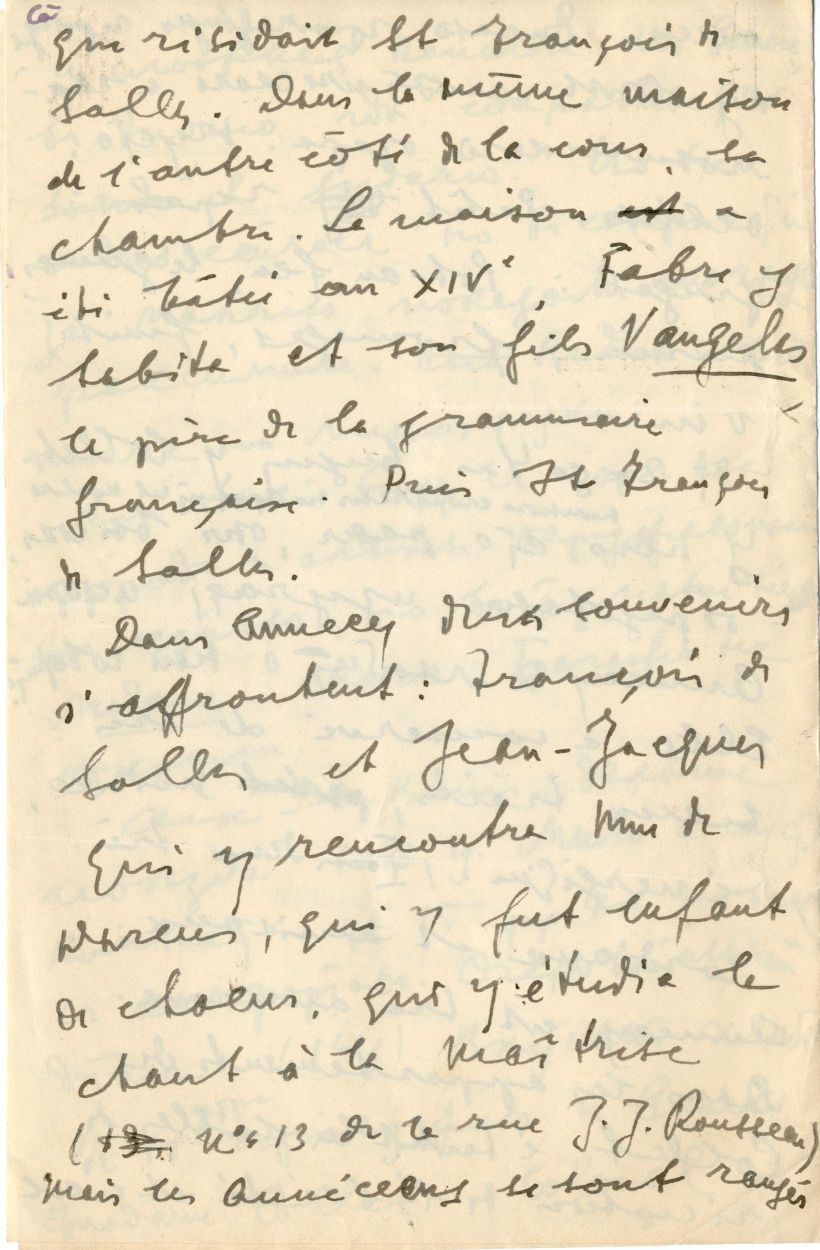 là
qui résidait St François de
Salles. Dans la même maison
de l'autre côté de la cour, sa
chambre. La maison est a
été bâtie au XIVe, Fabre y
habita et son fils Vangelas
le père de la grammaire
française. Puis St François
de Salles.
Dans Annecy deux souvenirs
s'affrontent : François de
Salles et Jean-Jacques
qui y rencontra Mme de
Warens, qui y fut enfant
de choeur, qui y étudia le
chant à la Maîtrise
( n°s 13 de la rue J. J. Rousseau)
mais les Annéciens se sont rangés